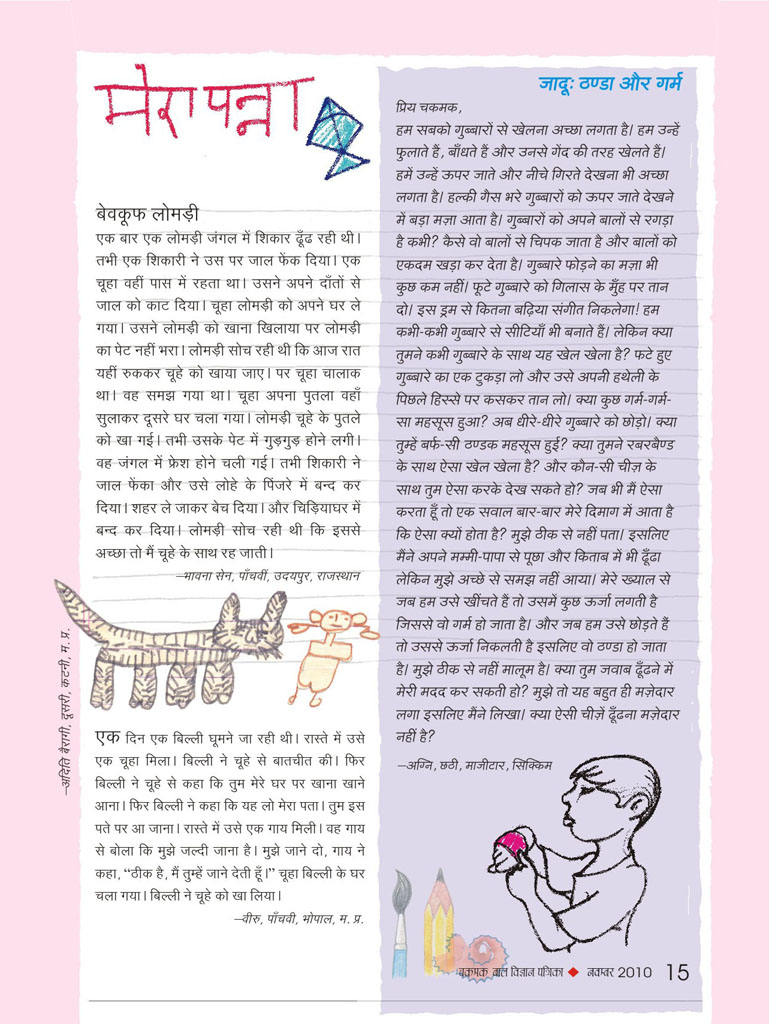 मेरा पन्ना
बेवकूफ लोमड़ी
एक बार एक लोमड़ी जंगल में शिकार ढूँढ रही थी।
तभी एक शिकारी ने उस पर जाल फेंक दिया। एक
चूहा वहीं पास में रहता था। उसने अपने दाँतों से
जाल को काट दिया। चूहा लोमड़ी को अपने घर ले
गया। उसने लोमड़ी को खाना खिलाया पर लोमड़ी
का पेट नहीं भरा। लोमड़ी सोच रही थी कि आज रात
यहीं रुककर चूहे को खाया जाए। पर चूहा चालाक
था। वह समझ गया था। चूहा अपना पुतला वहाँ
सुलाकर दूसरे घर चला गया। लोमड़ी चूहे के पुतले
को खा गई। तभी उसके पेट में गुड़गुड़ होने लगी।
वह जंगल में फ्रेश होने चली गई। तभी शिकारी ने
जाल फेंका और उसे लोहे के पिंजरे में बन्द कर
दिया। शहर ले जाकर बेच दिया। और चिड़ियाघर में
बन्द कर दिया। लोमड़ी सोच रही थी कि इससे
अच्छा तो मैं चूहे के साथ रह जाती।
–भावना सेन, पाँचवीं, उदयपुर, राजस्थान
–अदिति बैरागी, दूसरी, कटनी, म. प्र.
एक दिन एक बिल्ली घूमने जा रही थी। रास्ते में उसे
एक चूहा मिला। बिल्ली ने चूहे से बातचीत की। फिर
बिल्ली ने चूहे से कहा कि तुम मेरे घर पर खाना खाने
आना। फिर बिल्ली ने कहा कि यह लो मेरा पता। तुम इस
पते पर आ जाना। रास्ते में उसे एक गाय मिली। वह गाय
से बोला कि मुझे जल्दी जाना है। मुझे जाने दो, गाय ने
कहा, “ठीक है, मैं तुम्हें जाने देती हूँ।” चूहा बिल्ली के घर
चला गया। बिल्ली ने चूहे को खा लिया।
–वीरु, पाँचवी, भोपाल, म. प्र.
जादूः ठण्डा और गर्म
प्रिय चकमक,
हम सबको गुब्बारों से खेलना अच्छा लगता है। हम उन्हें
फुलाते हैं, बाँधते हैं और उनसे गेंद की तरह खेलते हैं।
हमें उन्हें ऊपर जाते और नीचे गिरते देखना भी अच्छा
लगता है। हल्की गैस भरे गुब्बारों को ऊपर जाते देखने
में बड़ा मज़ा आता है। गुब्बारों को अपने बालों से रगड़ा
है कभी? कैसे वो बालों से चिपक जाता है और बालों को
एकदम खड़ा कर देता है। गुब्बारे फोड़ने का मज़ा भी
कुछ कम नहीं। फूटे गुब्बारे को गिलास के मुँह पर तान
दो। इस ड्रम से कितना बढ़िया संगीत निकलेगा! हम
कभी-कभी गुब्बारे से सीटियाँ भी बनाते हैं। लेकिन क्या
तुमने कभी गुब्बारे के साथ यह खेल खेला है? फटे हुए
गुब्बारे का एक टुकड़ा लो और उसे अपनी हथेली के
पिछले हिस्से पर कसकर तान लो। क्या कुछ गर्म-गर्म-
सा महसूस हुआ? अब धीरे-धीरे गुब्बारे को छोड़ो। क्या
तुम्हें बर्फ-सी ठण्डक महसूस हुई? क्या तुमने रबरबैण्ड
के साथ ऐसा खेल खेला है? और कौन-सी चीज़ के
साथ तुम ऐसा करके देख सकते हो? जब भी मैं ऐसा
करता हूँ तो एक सवाल बार-बार मेरे दिमाग में आता है
कि ऐसा क्यों होता है? मुझे ठीक से नहीं पता। इसलिए
मैंने अपने मम्मी-पापा से पूछा और किताब में भी ढूँढा
लेकिन मुझे अच्छे से समझ नहीं आया। मेरे ख्याल से
जब हम उसे खींचते हैं तो उसमें कुछ ऊर्जा लगती है
जिससे वो गर्म हो जाता है। और जब हम उसे छोड़ते हैं
तो उससे ऊर्जा निकलती है इसलिए वो ठण्डा हो जाता
है। मुझे ठीक से नहीं मालूम है। क्या तुम जवाब ढूँढने में
मेरी मदद कर सकती हो? मुझे तो यह बहुत ही मज़ेदार
लगा इसलिए मैंने लिखा। क्या ऐसी चीज़ें ढूँढना मज़ेदार
नहीं है?
–अग्नि, छठी, माजीटार, सिक्किम
चकमक बाल विज्ञान पत्रिका ◆ नवम्बर 2010 15